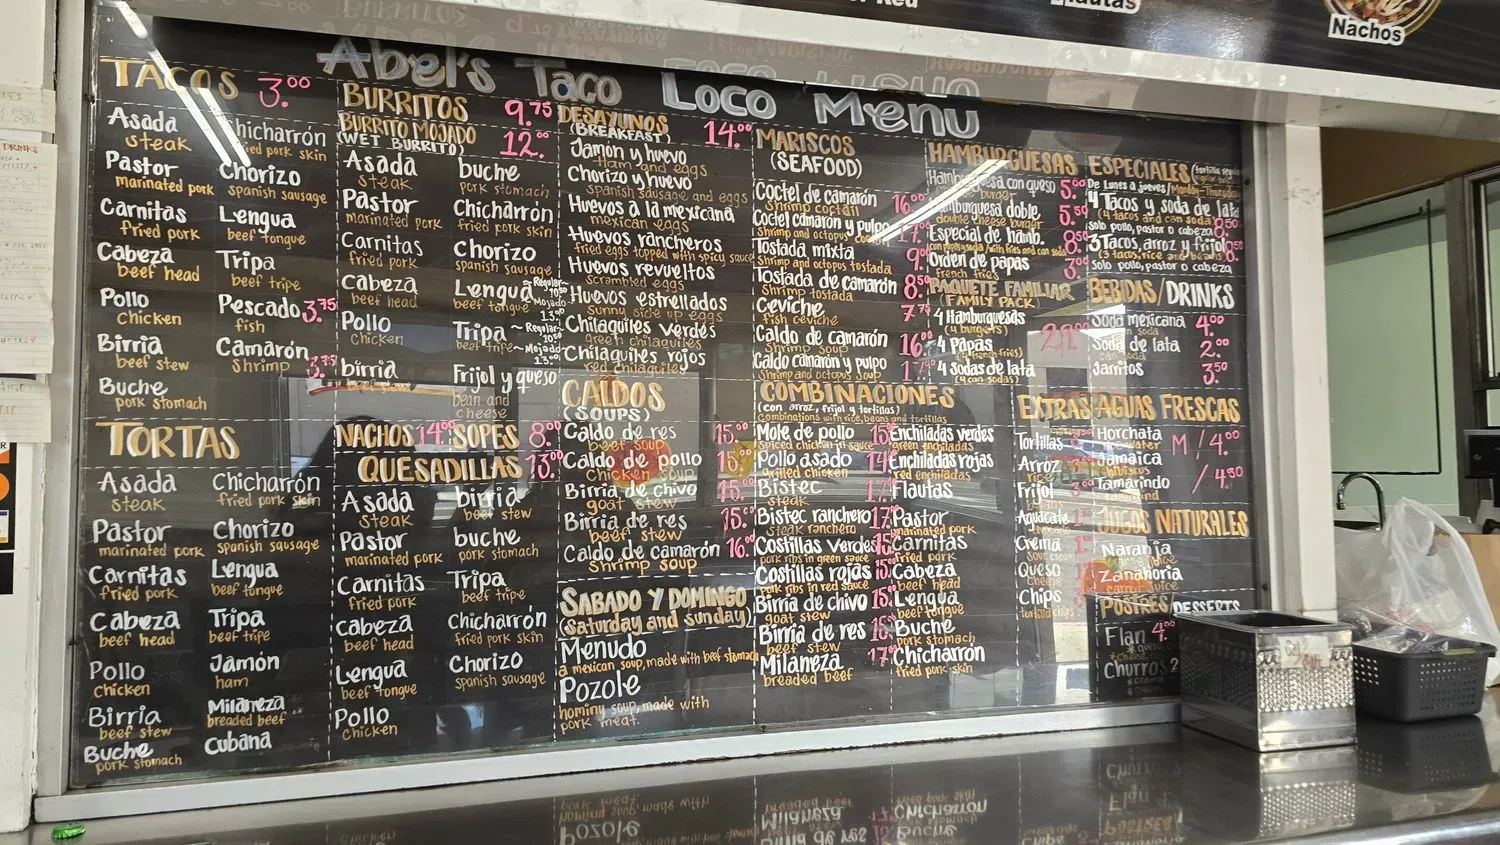 Nachos
Abel's Taco Loco Menu
TACOS 3.00
Asada
steak
Pastor
marinated pork
Carnitas
fried pork
Cabeza
beef head
Pollo
chicken
Birria
beef stew
Buche
pork stomach
Chicharrón
fried pork skin
Chorizo
spanish sausage
Lengua
beef tongue
Tripa
beef tripe
Pescado 3.75
fish
Camarón
shrimp 3.75
TORTAS
Asada
steak
Pastor
marinated pork
Carnitas
fried pork
Cabeza
beef head
Pollo
chicken
Birria
beef stew
Buche
pork stomach
Chicharrón
fried pork skin
Chorizo
spanish sausage
Lengua
beef tongue
Tripa
beef tripe
Jamón
ham
Milaneza
breaded beef
Cubana
BURRITOS 9.75
BURRITO MOJADO 12.00
(WET BURRITO)
Asada
steak
Pastor
marinated pork
Carnitas
fried pork
Cabeza
beef head
Pollo
chicken
birria
beef stew
buche
pork stomach
Chicharrón
fried pork skin
Chorizo
spanish sausage
Lengua
beef tongue
Tripa
beef tripe
Frijol y queso
bean and
cheese
NACHOS 14.00
SOPES 8.00
QUESADILLAS 13.00
Asada
steak
Pastor
marinated pork
Carnitas
fried pork
Cabeza
beef head
Lengua
beef tongue
Pollo
chicken
birria
beef stew
buche
pork stomach
Tripa
beef tripe
Chicharrón
fried pork skin
Chorizo
spanish sausage
DESAYUNOS 14.00
(BREAKFAST)
Jamon y huevo
Ham and eggs
Chorizo y huevo
spanish sausage and eggs
Huevos a la mexicana
mexican eggs
Huevos rancheros
fried eggs topped with spicy sauce
Huevos revueltos
scrambled eggs
Huevos estrellados
sunny side up eggs
Chilaquiles verdes
green chilaquiles
Chilaquiles rojos
red chilaquiles
CALDOS
(SOUPS)
Caldo de res 15.00
beef soup
Caldo de pollo
chicken soup
Birria de chivo 15.00
goat stew
Birria de res 15.00
beef stew
Caldo de camarón 16.00
Shrimp soup
SABADO Y DOMINGO
(Saturday and Sunday)
Menudo
a mexican soup, made with beef stomach
Pozole
hominy soup, made with
pork meat.
MARISCOS
(SEAFOOD)
Coctel de camarón
Shrimp coctail
Coctel camarón y pulpo
Shrimp and octopus
Tostada mixta
Shrimp and octopus tostada
Tostada de camarón 8.50
Shrimp tostada
Ceviche
fish ceviche
Caldo de camarón
Shrimp soup
Caldo camarón y pulpo
Shrimp and octopus soup
COMBINACIONES
(con arroz, frijol y tortillas)
combinations with rice, beans and tortillas
Mole de pollo
spiced chicken in sauce
Pollo asado
grilled chicken
Bistec
steak
Bistec ranchero
steak ranchero
Costillas verdes
pork ribs in green sauce
Costillas rojas
pork ribs in red sauce
Birria de chivo
goat stew
Birria de res
beef stew
Milaneza
breaded beef
Enchiladas verdes
green enchiladas
Enchiladas rojas
red enchiladas
Flautas
Pastor
marinated pork
Carnitas
fried pork
Cabeza
beef head
Lengua
beef tongue
Buche
pork stomach
Chicharrón
fried pork skin
HAMBURGUESAS
Hamburguesa con queso 5.00
Hamburguesa doble 5.50
double cheese burger
Especial de hamb. 8.50
Orden de papas
french fries
PAQUETE FAMILIAR
(FAMILY PACK)
4 Hamburguesas
(4 burgers)
4 Papas
4 sodas de lata
(4 can sodas)
ESPECIALES
De Lunes a jueves / Monday - Thursday
4 Tacos y soda de lata
(4 tacos and can soda)
Solo pollo, pastor o cabeza
3 Tacos, arroz y frijol
Solo pollo, pastor o cabeza
BEBIDAS/DRINKS
Soda mexicana 4.00
Soda de lata 2.00
can soda
Jarritos 3.50
EXTRAS
Tortillas
Arroz
rice
Frijol
Aguacate
Crema
Queso
cheese
Chips
AGUAS FRESCAS
Horchata M / 4.00
Jamaica
Tamarindo / 4.50
JUGOS NATURALES
Naranja
Zanahoria
carrot juice
POSTRES/DESSERTS
Flan 4.00
Churros